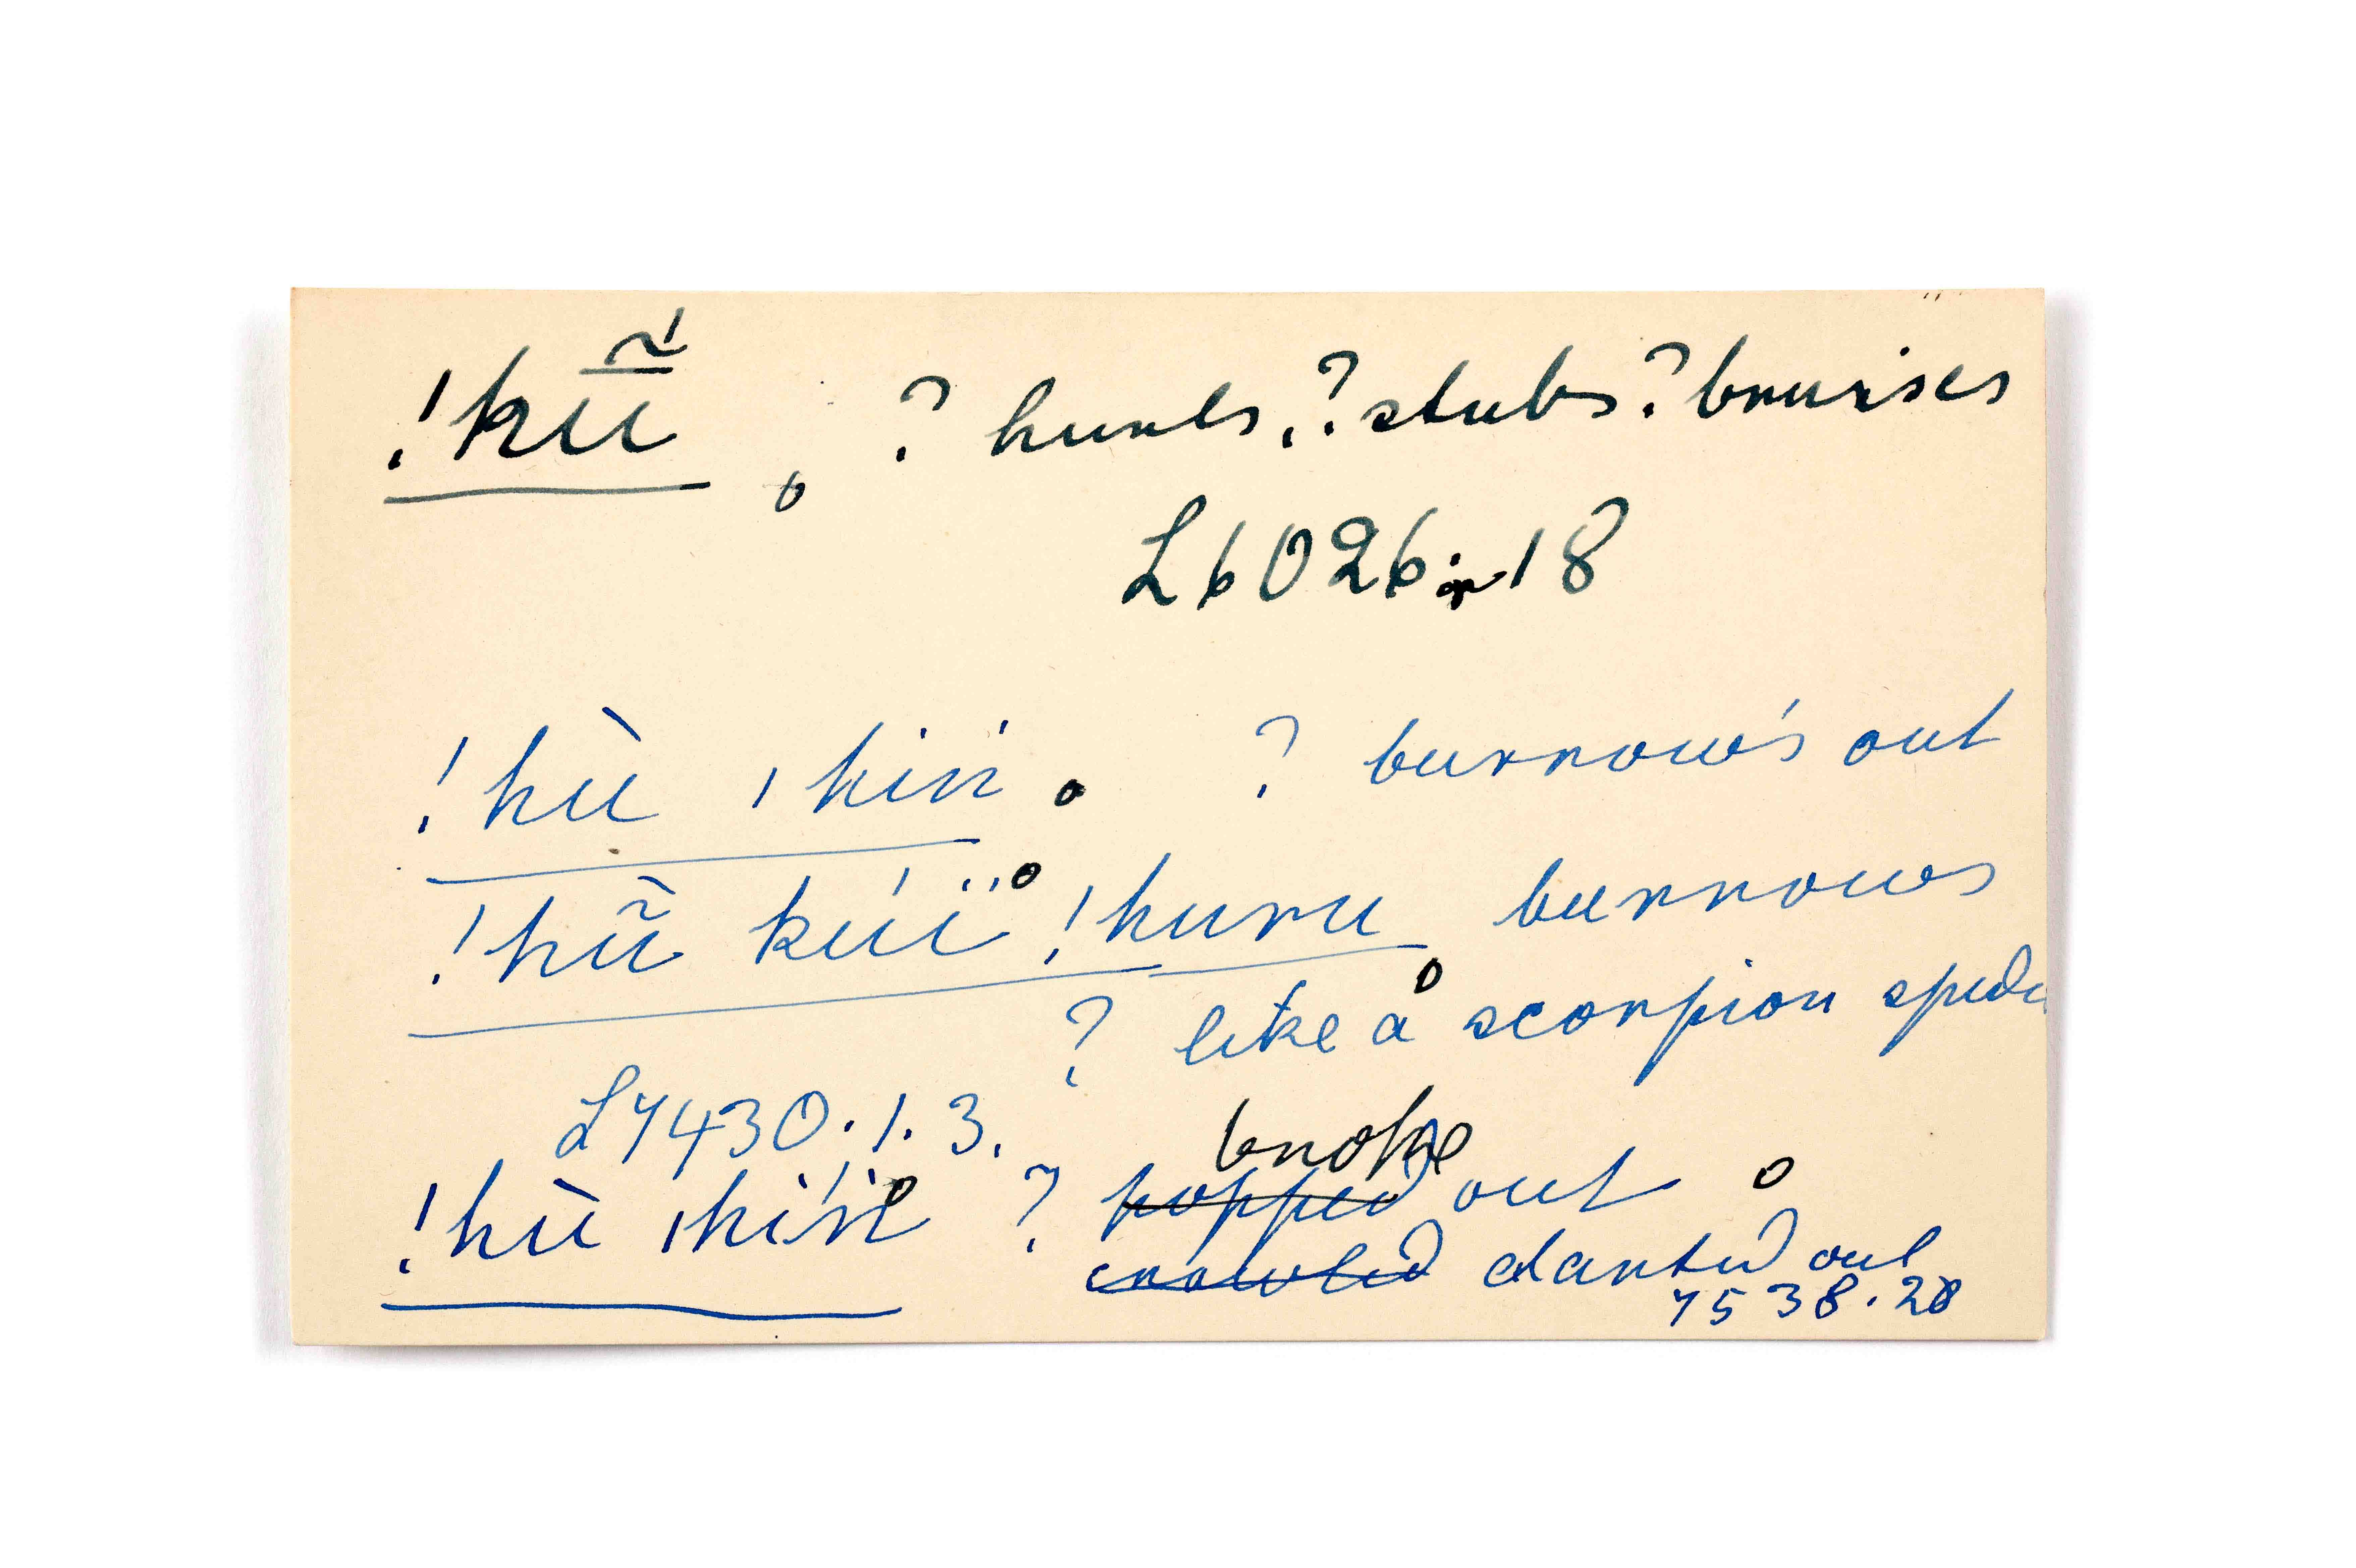 !kũ̄́ , ? hurls, ? stubs ? bruises
L 6026 . 18
!hù ı hiń . ? burrows out
!hũ kúï !huru burrows
? like a scorpion spide
L 7430 . 1 . 3 .
broke
!hù ı hiń ? popped out
crawled darted out
7538 . 28